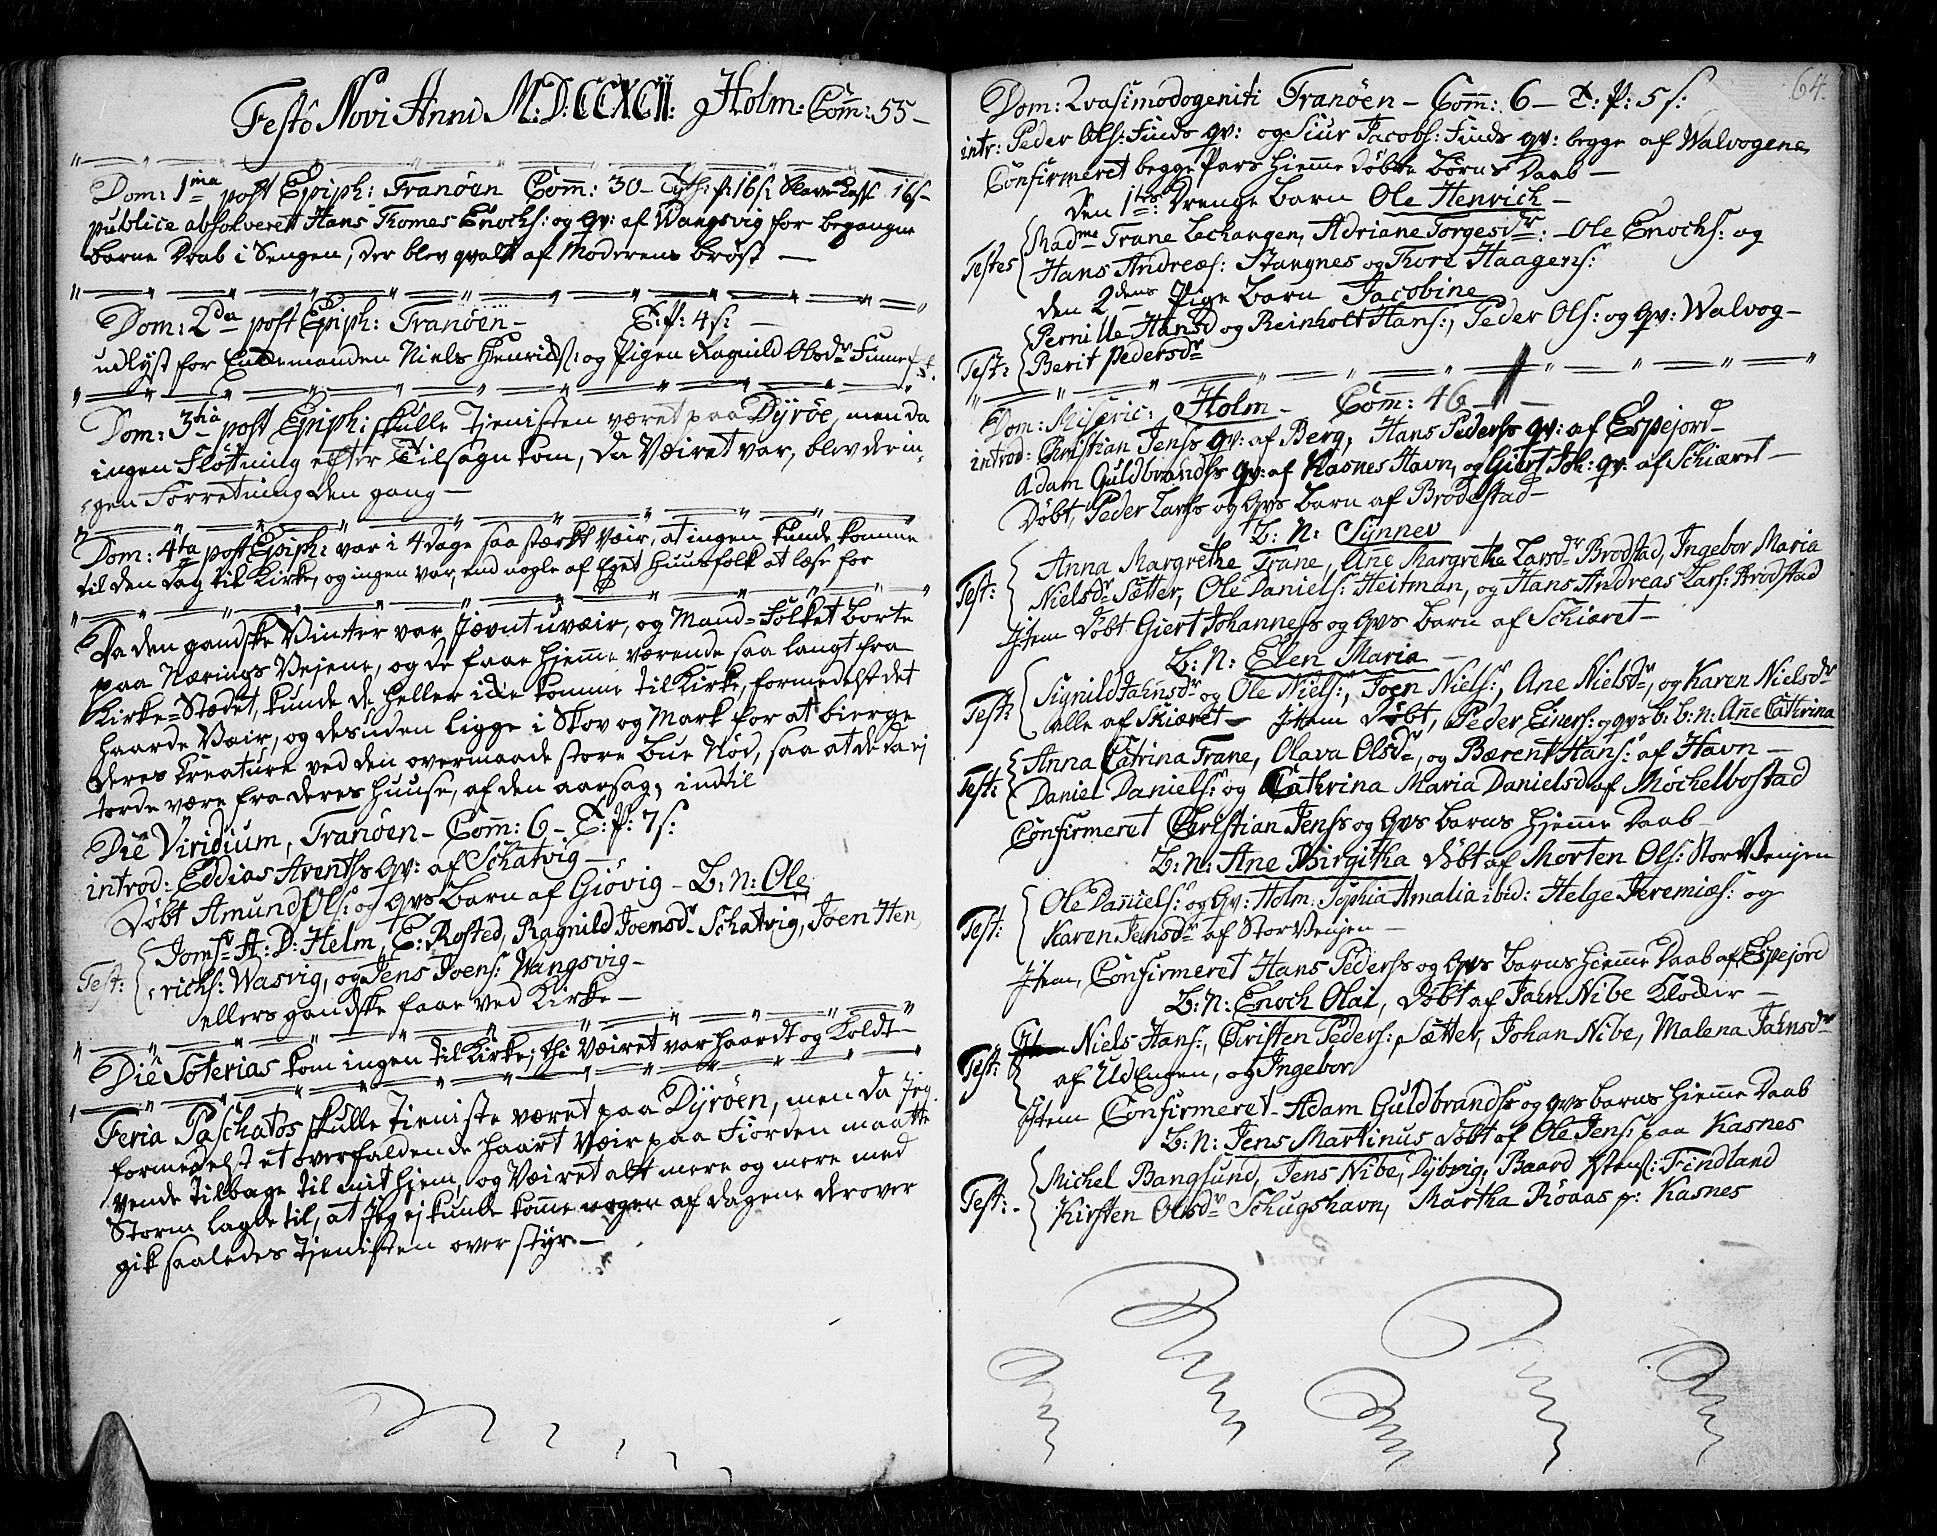 Festô Novi Anni M:D:CCXCII: Holm: Com̅: 55 –
Dom: 1ma post Epiph: Tranöen Com̅: 30 – Tyth: p: 16 s: Slave Cass 16 s –
publice absolveret Hans Thomes Enochs: og qv: af Wangsvig for begangne
Barne Daab i Sengen, der blev qvalt af Moderens Bröst –
Dom: 2da post Epiph: Tranöen – T: P: 4 s: –
udlyst for Enkemanden Niels Henrichs: og Pigen Ragnild Olsdr Finnes
Dom: 3tia post Epiph: skulle Tjenisten været paa Dyröe, men da
ingen Fløttning efter Tilsagn kom, da Væiret var, blev der in,
,gen Forretning den gang –
Dom: 4ta post Epiph: var i 4 dage saa stærkt Væir, at ingen kunde komme
til den Dag til Kirke, og ingen var, end nogle af Eget Huusfolk at læse for
Da den gandske Vinter var Jævnt uvæir, og Mand-Folket borte
paa Nærings Vejene, og de faae hjemme værende saa langt fra
Kirke-Stædet, kunde de heller ikke komme til Kirke, formedelst det
haarde Væir, og desuden ligge i Skov og Mark for at bierge
deres Kreature ved den overmaade store Bue Nød, saa at de da ej
torde være fra deres Huuse, af den aarsag, indtil
Die Viridium, Tranöen – Com̅: 6 – T: P: 7 s:
introd: Eddias Arentss qv: af Schatvig –
Døbt Amund Ols: og qvs Barn af Giövig – B: N: Ole
Test: Jomfr A: D: Helm, E: Rosted, Ragnild Joensdr Schatvig, Joen Hen
,richs: Wasvig, og Jens Joens: Wangsvig –
ellers gandske faae ved Kirke –
Die Soterias kom ingen til Kirke, thi Væiret var haardt og Koldt –
Feria Paschatos skulle Tieniste været paa Dyröen, men da Jeg
formedelst et overfaldende haart Væir paa Fiorden maatte
vende tilbage til mit hjem, og Væiret alt mere og mere med
Storm lagde til, at Jeg ej kunde komme nogen af dagene derover
gik saaledes Tjenisten over styr –
64.
Dom: Qvasimodogeniti Tranöen – Com̅: 6 – T: P: 5 s:
intr: Peder Ols: Finds qv: og Siur Jacobs: Finds qv: begge af Walvogene
Confirmeret begge Pars hjemme døbte Børns Daab –
Den 1tes: Drenge Barn Ole Henrich –
Testes Madme Trane Lechangen, Adriane Torgesdr: Ole Enochs: og
Hans Andreæs: Stangnes og Thore Haagens:
den 2dens Pige Barn Jacobine
Pernille Hansd og Reinholt Hans:, Peder Ols: og qv: Walvog –
Test: Berit Pedersdr
Dom: Miseric: Holm – Com̅: 46 –
introd: Christian Jenss qv: af Berg, Hans Pederss qv: af Espejord –
Adam Guldbrandss qv: af Kasnes Havn, og Giert Joh: qv: af Schiæret –
Døbt, Peder Larss og qvs Barn af Brödestad –
B: N: Synnev
Test: Anna Margrethe Trane, Ane Margrethe Larsdr Brödstad, Ingebor Maria
Nielsdr Sætter, Ole Daniels: Heitman, og Hans Andreas Lars: Brödstad
Item Døbt Giert Johanness og qvs Barn af Schiæret –
B: N: Elen Maria –
Test: Signild Jahnsdr og Ole Niels:, Joen Niels:, Ane Nielsdr, og Karen Nielsdr
alle af Skiæret – Item Døbt, Peder Einers: og qvs b: b: n: Anne Cathrina
Test: Anna Catrina Trane, Olava Olsdr, og Bærent Hans: af Havn –
Daniel Daniels: og Cathrina Maria Danielsd af Möckelbostad
Confirmeret Christian Jenss og qvs Barns hjemme Daab
B: N: Ane Birgitha døbt af Morten Ols: StorVenjen
Test: Ole Daniels: og qv: Holm. Sophia Amalia ibid: Helge Jeremiæs: og
Karen Jensdr af StorVenjen –
Item, Confirmeret Hans Pederss og qvs Barns hjemme Daab af Espejord
B: N: Enoch Olai, døbt af Jahn Nibe Klocker –
Test: Niels Hans:, Christen Peders: Sætter, Johan Nibe, Malena Jahnsdr
af UdEngen, og Ingebor
Item Confirmeret Adam Guldbrandss og qvs Barns hjemme Daab
B: N: Jens Martinus døbt af Ole Jens: paa Kasnes
Test: Michel Bangsund, Jens Nibe, Dybvig, Baard Stens: Findland
Kirsten Olsdr Schugshavn, Martha Röaas p: Kasnes